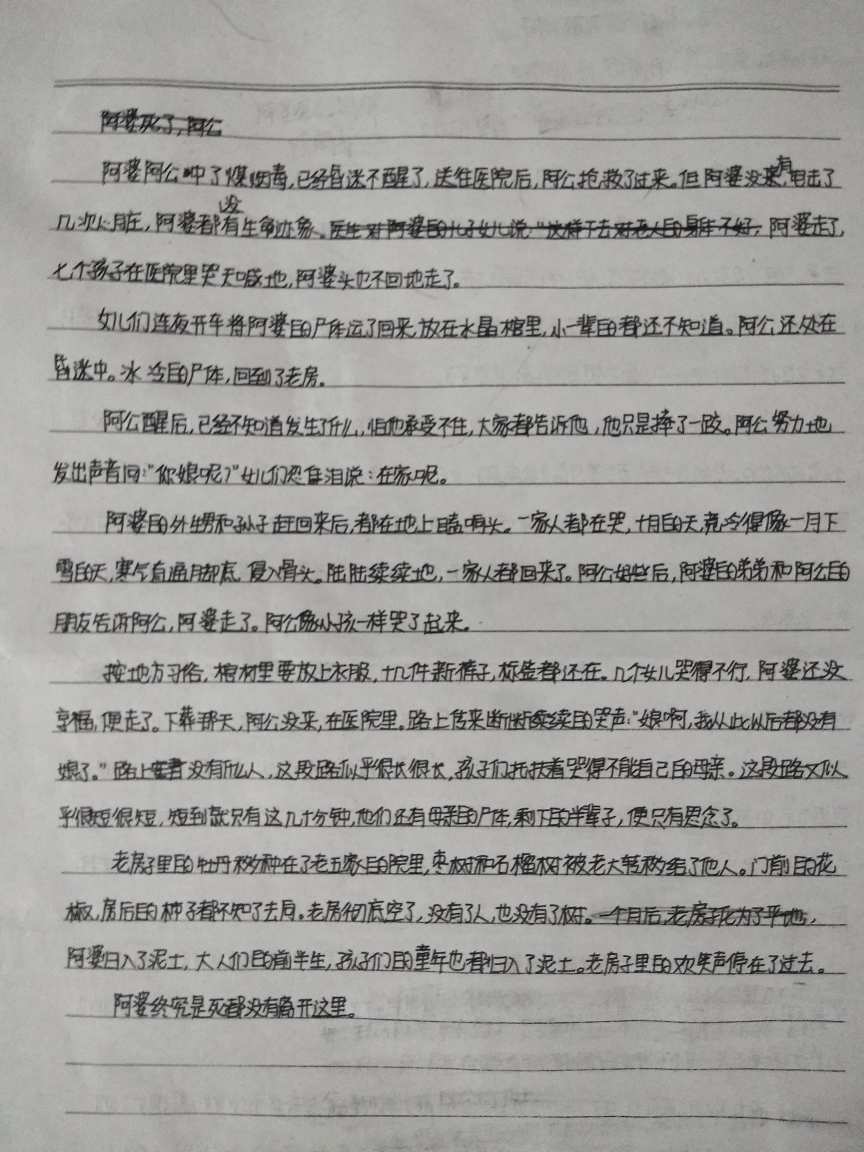 阿婆死了，阿公
阿婆阿公中了煤烟毒，已经昏迷不醒了，送往医院后，阿公抢救了过来。但阿婆没有，电击了
几次心脏，阿婆都没有生命迹象。医生对阿婆的儿子女儿说："这样下去对老人的身体不好，阿婆走了，
七个孩子在医院里哭天喊地，阿婆头也不回地走了。
女儿们连夜开车将阿婆的尸体运了回来，放在水晶棺里，小一辈的都还不知道。阿公还处在
昏迷中。冰冷的尸体，回到了老房。
阿公醒后，已经不知道发生了什么，怕他承受不住，大家都告诉他，他只是摔了一跤。阿公努力地
发出声音问："你娘呢？"女儿们忍住泪说：在家呢。
阿婆的外甥和孙子赶回来后，都在地上磕响头。一家人都在哭，十月的天，竟冷得像一月下
雪的天，寒气直逼脚底，侵入骨头。陆陆续续地，一家人都回来了。阿公好些后，阿婆的弟弟和阿公的
朋友告诉阿公，阿婆走了。阿公像小孩一样哭了起来。
按地方习俗，棺材里要放上衣服，十几件新裤子，标签都还在。几个女儿哭得不行，阿婆还没
享福，便走了。下葬那天，阿公没来，在医院里。路上传来断断续续的哭声："娘啊，我从此以后都没有
娘了。"路上没有什么人，这段路似乎很长很长，孩子们扶着哭得不能自已的母亲。这段路又似
乎很短很短，短到就只有这几十分钟，他们还有母亲的尸体，剩下的半辈子，便只有思念了。
老房子里的牡丹移种在了老五家的院里，枣树和石榴树被老大转移给了他人。门前的花
椒，房后的柿子都不知了去向。老房彻底空了，没有了人，也没有了树。一个月后，老房子化为了平地，
阿婆归入了泥土，大人们的前半生，孩子们的童年也都归入了泥土。老房子里的欢笑声停在了过去。
阿婆终究是死都没有离开这里。